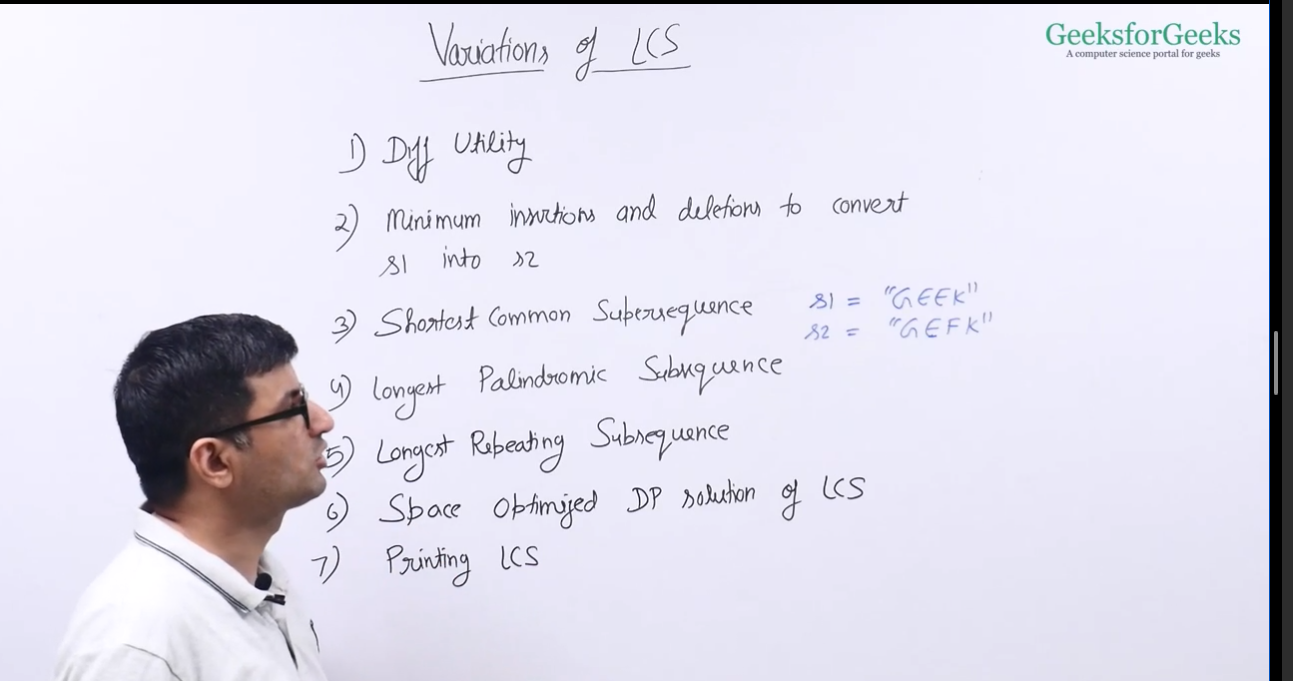 Variations of LCS
GeeksforGeeks
A computer science portal for geeks
1) Diff Utility
2) Minimum insertions and deletions to convert
s1 into s2
3) Shortest Common Supersequence
s1 = "GEEK"
s2 = "GEFK"
4) Longest Palindromic Subsequence
5) Longest Repeating Subsequence
6) Space Optimized DP solution of LCS
7) Printing LCS